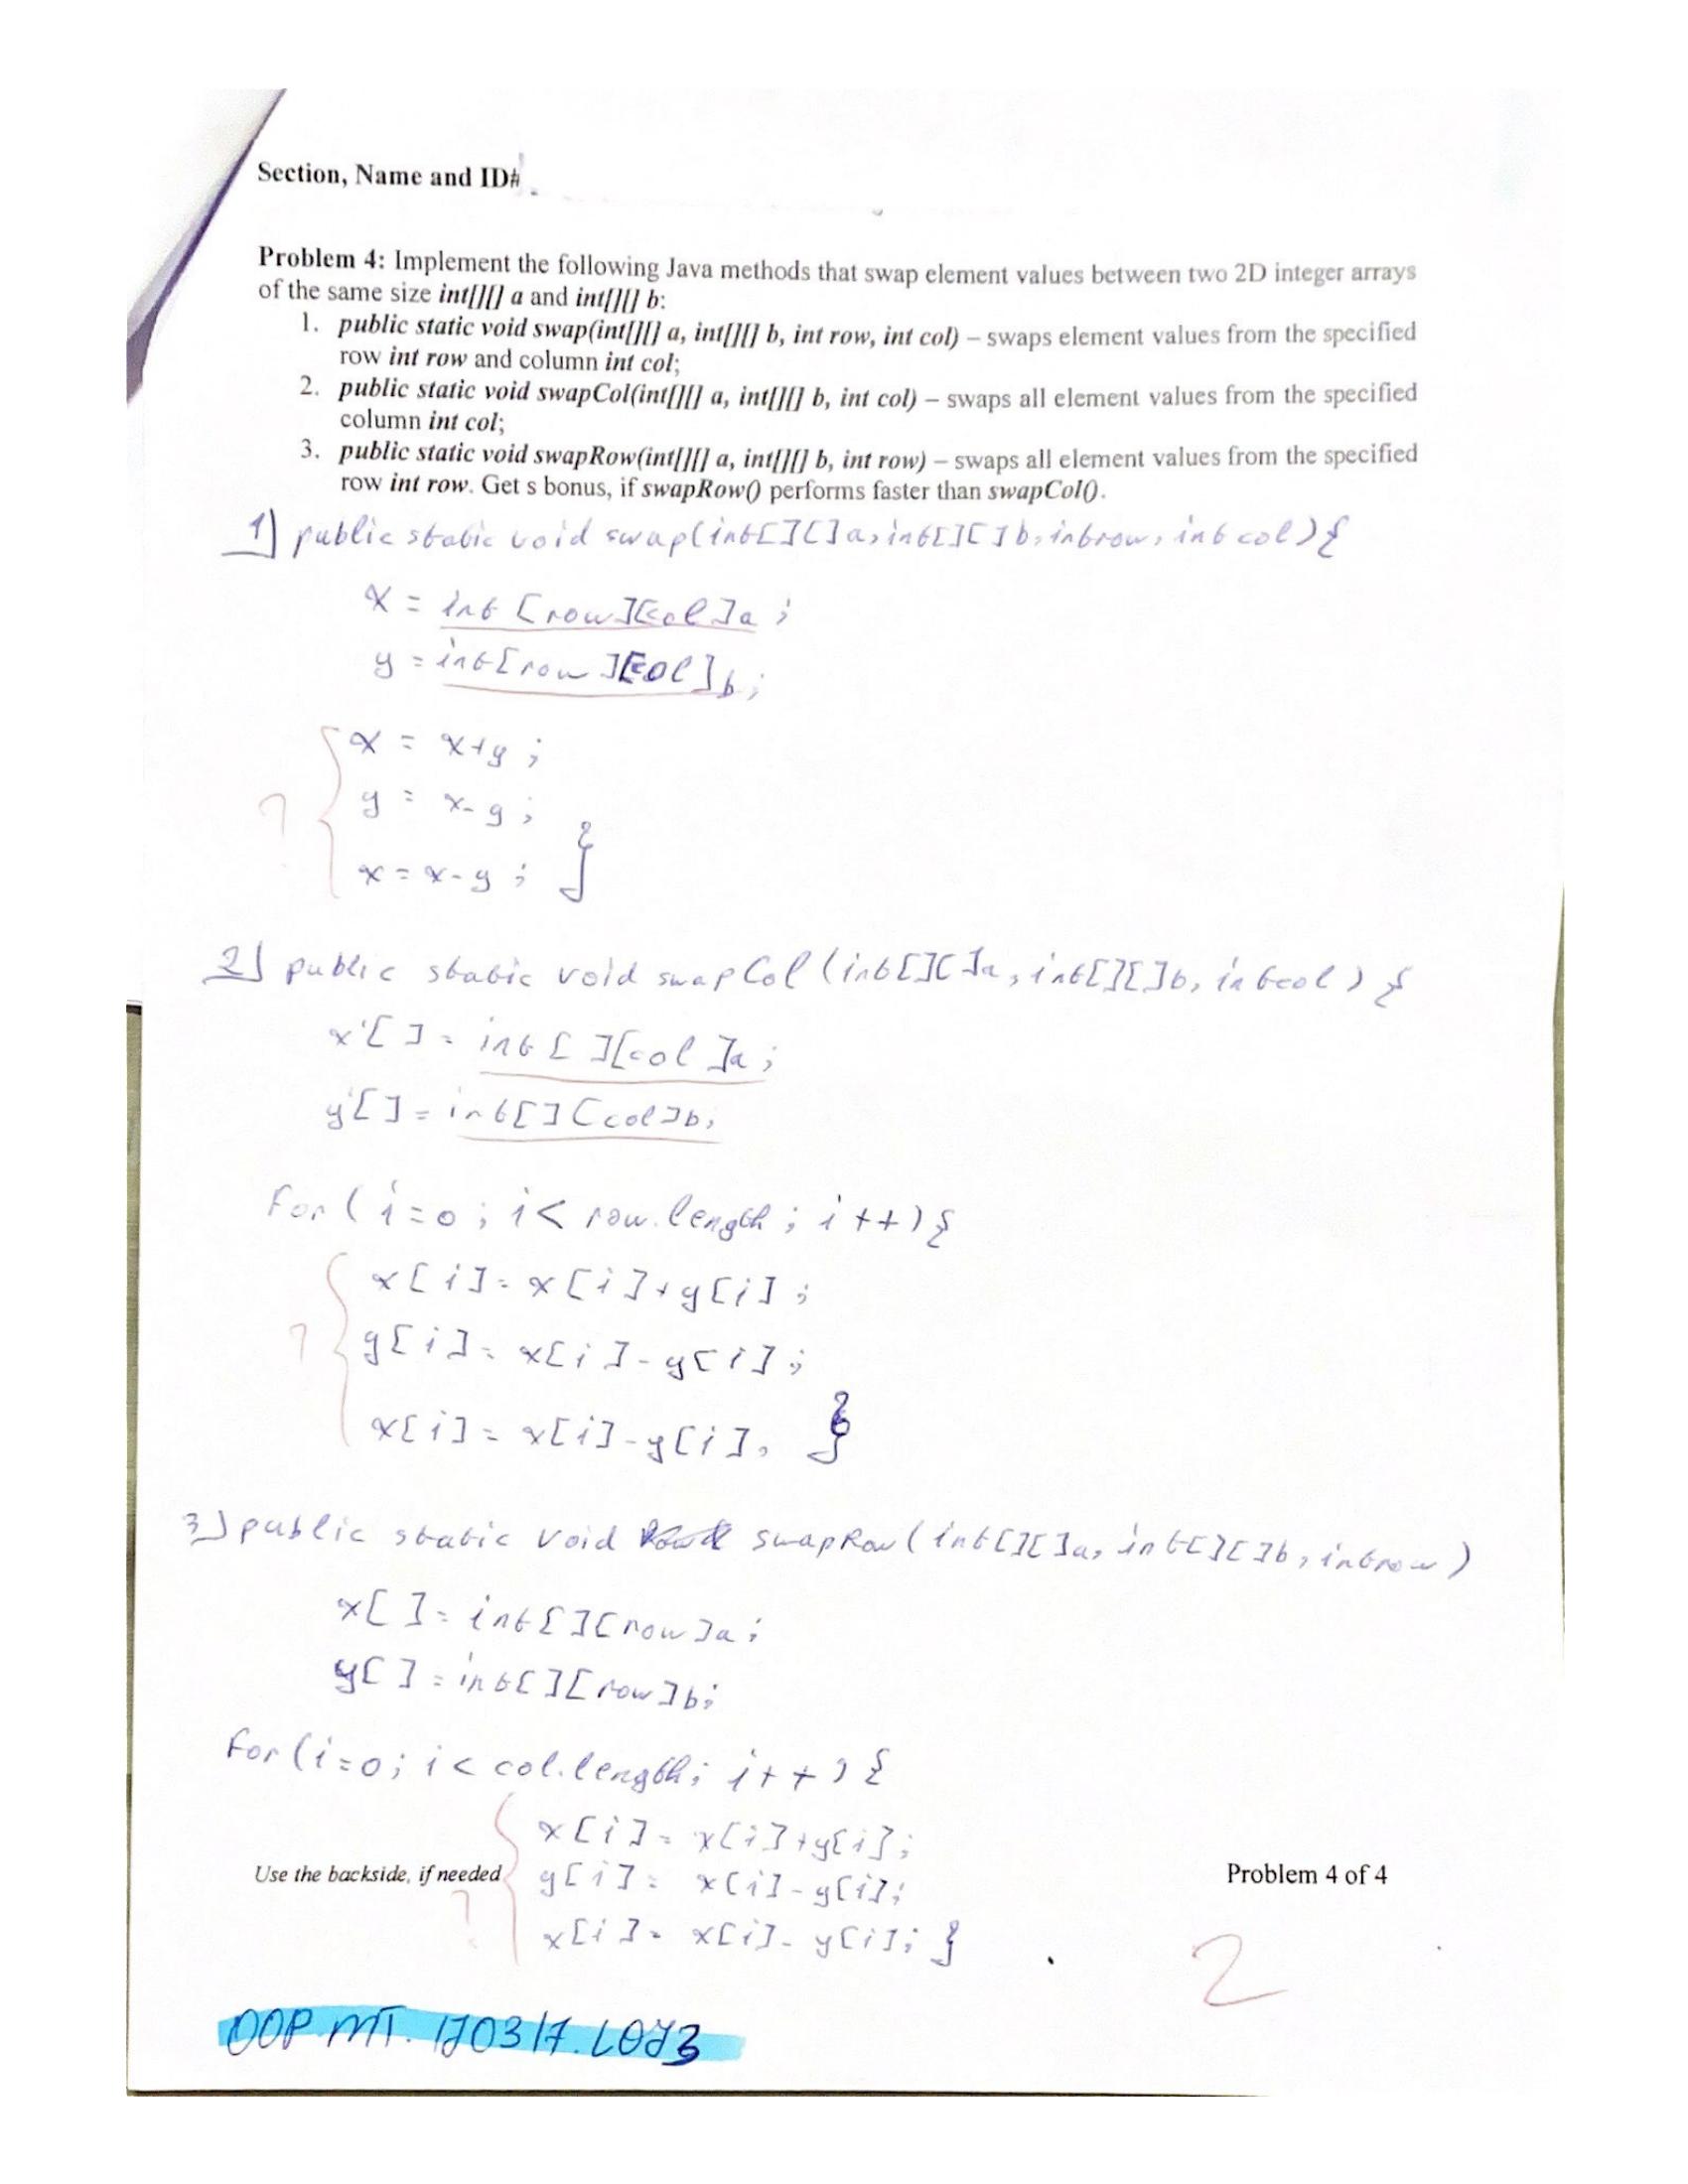 Section, Name and ID#
Problem 4: Implement the following Java methods that swap element values between two 2D integer arrays
of the same size int[][] a and int[][] b:
1. public static void swap(int[][] a, int[][] b, int row, int col) – swaps element values from the specified
row int row and column int col;
2. public static void swapCol(int[][] a, int[][] b, int col) – swaps all element values from the specified
column int col;
3. public static void swapRow(int[][] a, int[][] b, int row) – swaps all element values from the specified
row int row. Get s bonus, if swapRow() performs faster than swapCol().
1) public static void swap(int[][]a, int[][]b, int row, int col){
x = int [row][col]a;
y = int[row][col]b;
x = x+y;
? y = x-y;
x = x-y; }
2) public static void swapCol(int[][]a, int[][]b, int col) {
x[] = int[][col]a;
y[] = int[][col]b;
for(i=0; i< row.length; i++){
x[i] = x[i]+y[i];
? y[i] = x[i]-y[i];
x[i] = x[i]-y[i]; }
3) public static void swapRow(int[][]a, int[][]b, int row)
x[] = int[][row]a;
y[] = int[][row]b;
for(i=0; i< col.length; i++){
x[i] = x[i]+y[i];
Use the backside, if needed y[i] = x[i]-y[i]; Problem 4 of 4
? x[i] = x[i]-y[i]; }
2
OOP.MT.170317.L073